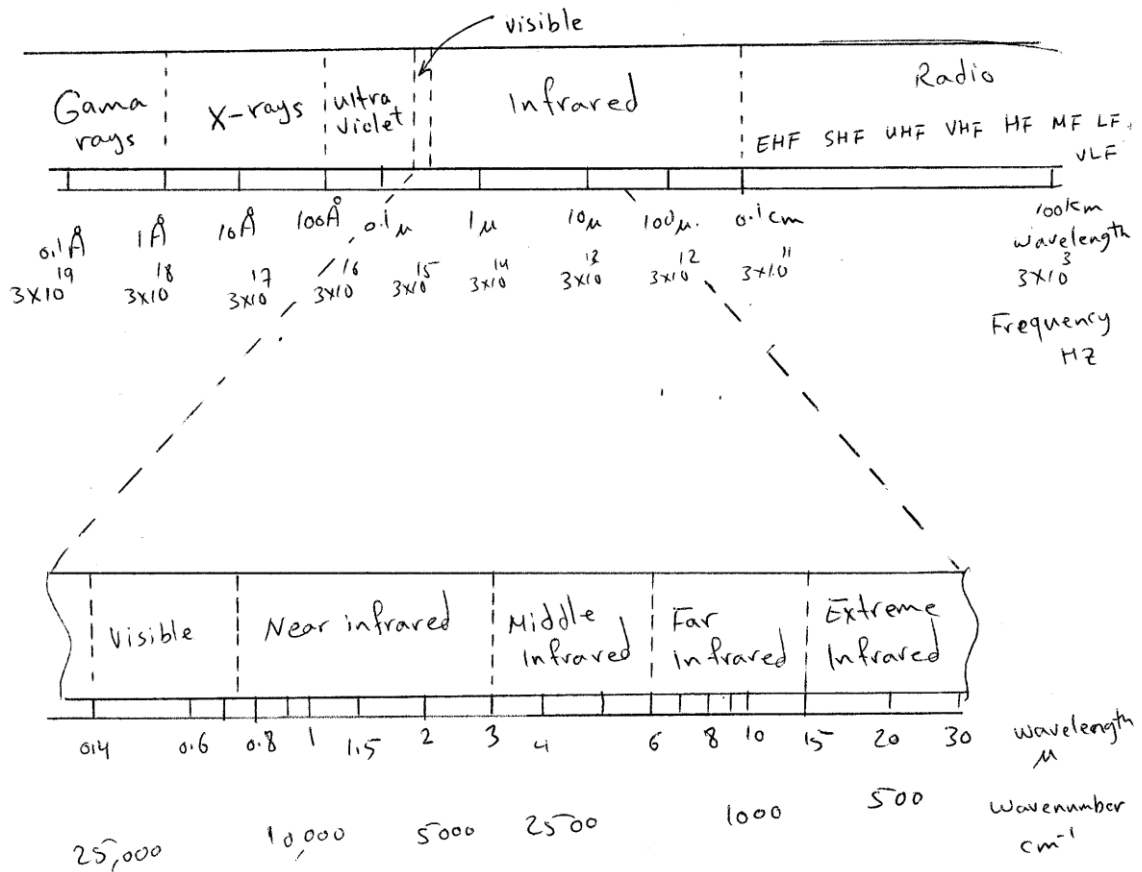 visible
Gama rays
X-rays
ultra violet
Infrared
Radio
EHF SHF UHF VHF HF MF LF
VLF
0.1Å 1Å 10Å 100Å 0.1μ 1μ 10μ 100μ. 0.1cm 100km
wavelength
3×10^19 3×10^18 3×10^17 3×10^16 3×10^15 3×10^14 3×10^13 3×10^12 3×10^11 3×10^3
Frequency
HZ
Visible
Near infrared
Middle
Infrared
Far
infrared
Extreme
Infrared
0.4 0.6 0.8 1 1.5 2 3 4 6 8 10 15 20 30
wavelength
μ
25,000 10,000 5000 2500 1000 500
wavenumber
cm⁻¹